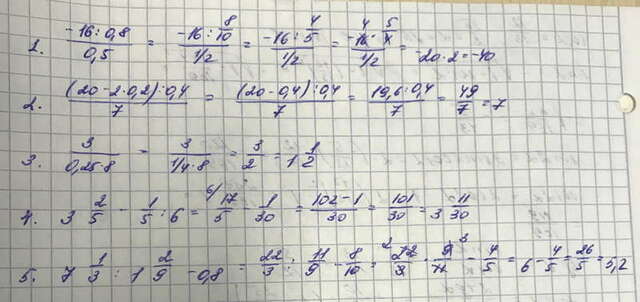 1. -16:0,8/0,5 = -16:8/10/1/2 = -16:4/5/1/2 = -16·5/4/1/2 = -20·2=-40
2. (20-2·0,2):0,4/7 = (20-0,4):0,4/7 = 19,6:0,4/7 = 49/7 = 7
3. 3/0,25·8 = 3/1/4·8 = 3/2 = 1 1/2
4. 3 2/5 - 1/5:6 = 17/5 - 1/30 = 102-1/30 = 101/30 = 3 11/30
5. 7 1/3 : 1 2/9 - 0,8 = 22/3 : 11/9 - 8/10 = 22/3 · 9/11 - 4/5 = 6 - 4/5 = 26/5 = 5,2